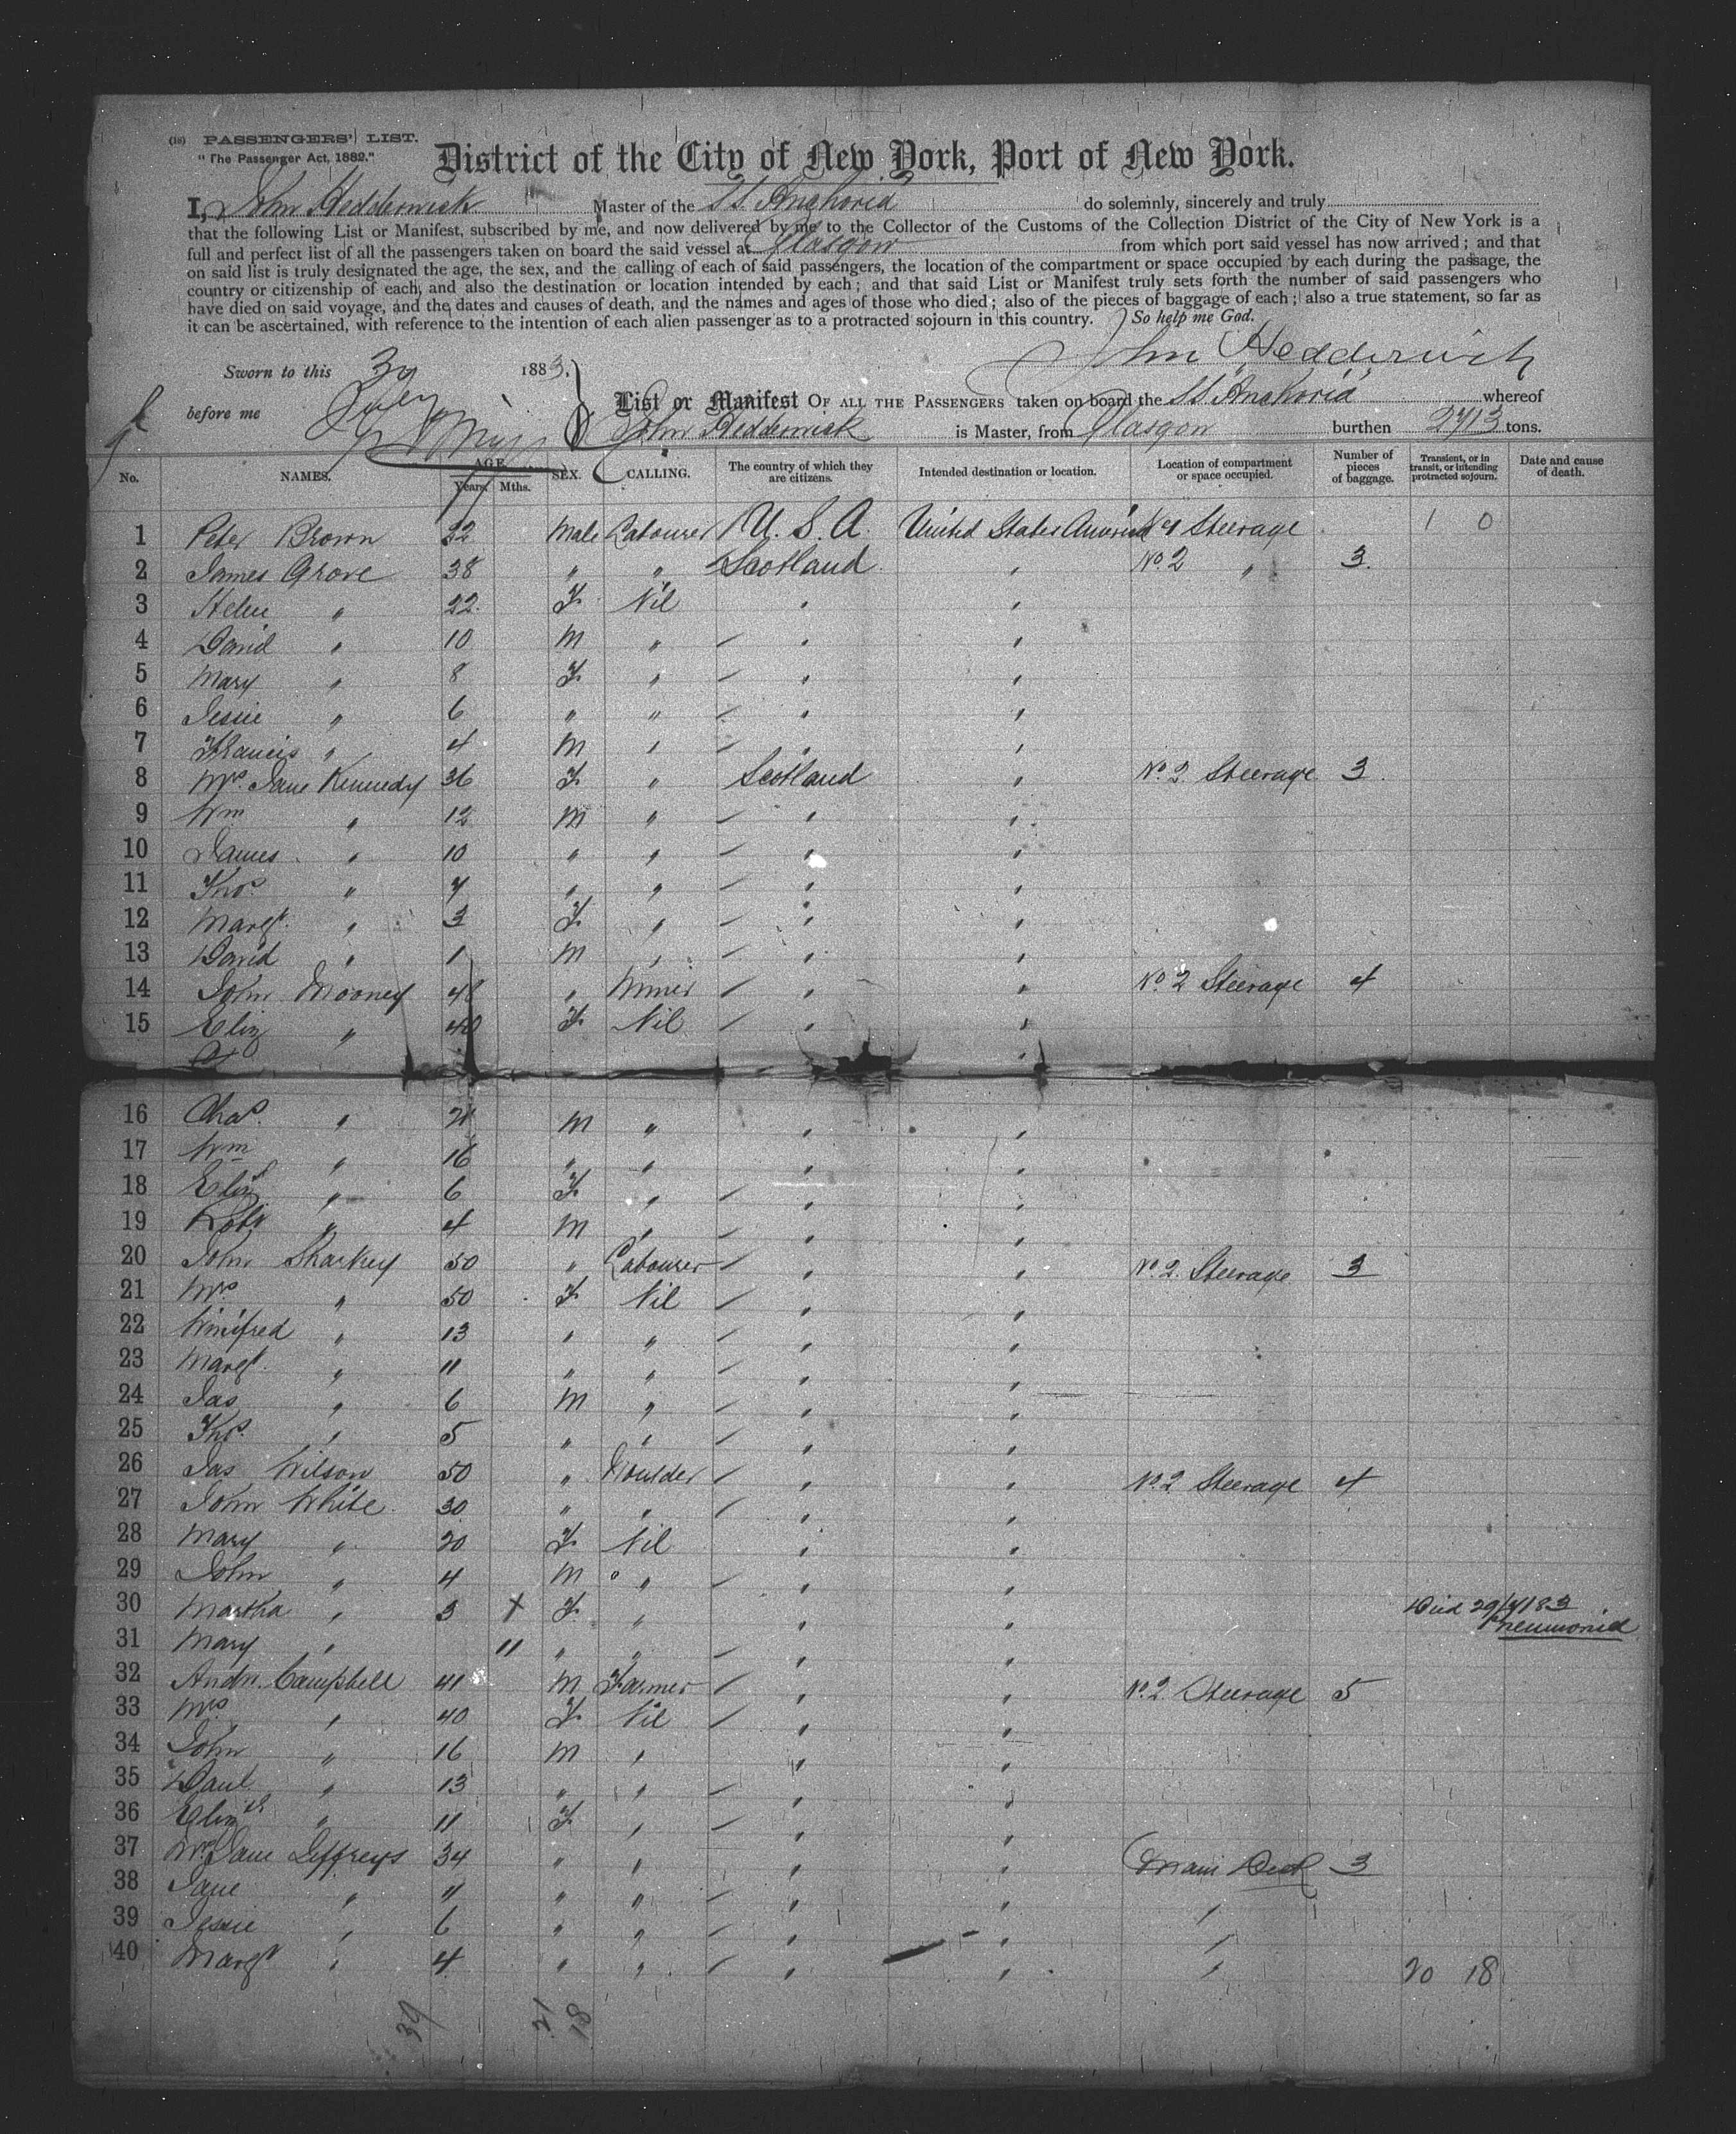 (18) PASSENGERS' LIST.
"The Passenger Act, 1882."
District of the City of New York, Port of New York.
I, John Hedderwick Master of the SS. Anchoria do solemnly, sincerely and truly
that the following List or Manifest, subscribed by me, and now delivered by me to the Collector of the Customs of the Collection District of the City of New York is a
full and perfect list of all the passengers taken on board the said vessel at Glasgow from which port said vessel has now arrived; and that
on said list is truly designated the age, the sex, and the calling of each of said passengers, the location of the compartment or space occupied by each during the passage, the
country or citizenship of each, and also the destination or location intended by each; and that said List or Manifest truly sets forth the number of said passengers who
have died on said voyage, and the dates and causes of death, and the names and ages of those who died; also of the pieces of baggage of each; also a true statement, so far as
it can be ascertained, with reference to the intention of each alien passenger as to a protracted sojourn in this country. So help me God.
John Hedderwick
Sworn to this 30 1883.
before me July
List or Manifest OF ALL THE PASSENGERS taken on board the SS Anchoria whereof
John Hedderwick is Master, from Glasgow burthen 2713 tons.
No. NAMES. AGE. Years. Mths. SEX. CALLING. The country of which they are citizens. Intended destination or location. Location of compartment or space occupied. Number of pieces of baggage. Transient, or in transit, or intending protracted sojourn. Date and cause of death.
1 Peter Brown 32 Male Labourer U.S.A. United States America Steerage 1 0
2 James Grove 38 " " Scotland " No. 2 " 3
3 Helen " 22 F Nil " "
4 David " 10 M " " "
5 Mary " 8 F " " "
6 Jessie " 6 " " " "
7 Francis " 4 M " " "
8 Mrs. Jane Kennedy 36 F " Scotland " No. 2 Steerage 3
9 Wm " 12 M " " "
10 James " 10 " " " "
11 Thos " 7 " " " "
12 Margt. " 3 F " " "
13 David " 1 M " " "
14 John Mooney 48 " Miner " " No. 2 Steerage 4
15 Eliz " 40 F Nil " "
16 Chas. " 21 M " " "
17 Wm " 16 " " " "
18 Eliz " 6 F " " "
19 Robt " 4 M " " "
20 John Sharkey 50 " Labourer " " No. 2 Steerage 3
21 Mrs " 50 F Nil " "
22 Winifred " 13 " " " "
23 Margt. " 11 " " " "
24 Jas " 6 M " " "
25 Thos. " 5 " " " "
26 Jas Wilson 50 " Moulder " " No. 2 Steerage 4
27 John White 30 " " " "
28 Mary " 20 F Nil " "
29 John " 4 M " " "
30 Martha " 3 X F " " " Died 29/7/83 Pneumonia
31 Mary " 11 " " " "
32 Andw. Campbell 41 M Farmer " " No. 2 Steerage 5
33 Mrs " 40 F Nil " "
34 John " 16 M " " "
35 Danl " 13 " " " "
36 Elizth " 11 F " " "
37 Mrs Jane Jeffreys 34 " " " " Main Deck 3
38 Jane " 11 " " " " "
39 Jessie " 6 " " " " "
40 Margt " 4 " " " " " 20 18
39 21 18